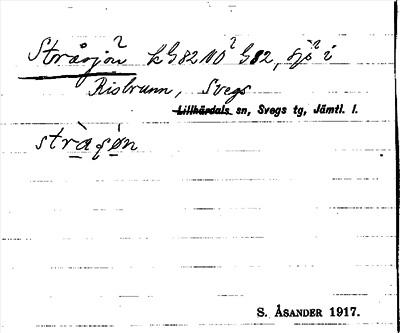 Stråsjön² kG82 NÖ² G82, sjö² i
Risbrunn, Svegs
Lillhärdals sn, Svegs tg, Jämtl. l.
S. ÅSANDER 1917.